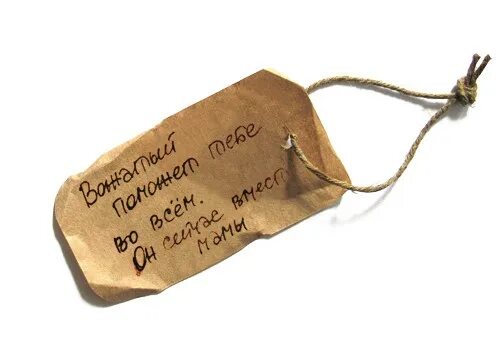 Вожатый
поможет тебе
во всём.
Он сейчас вмест
мамы